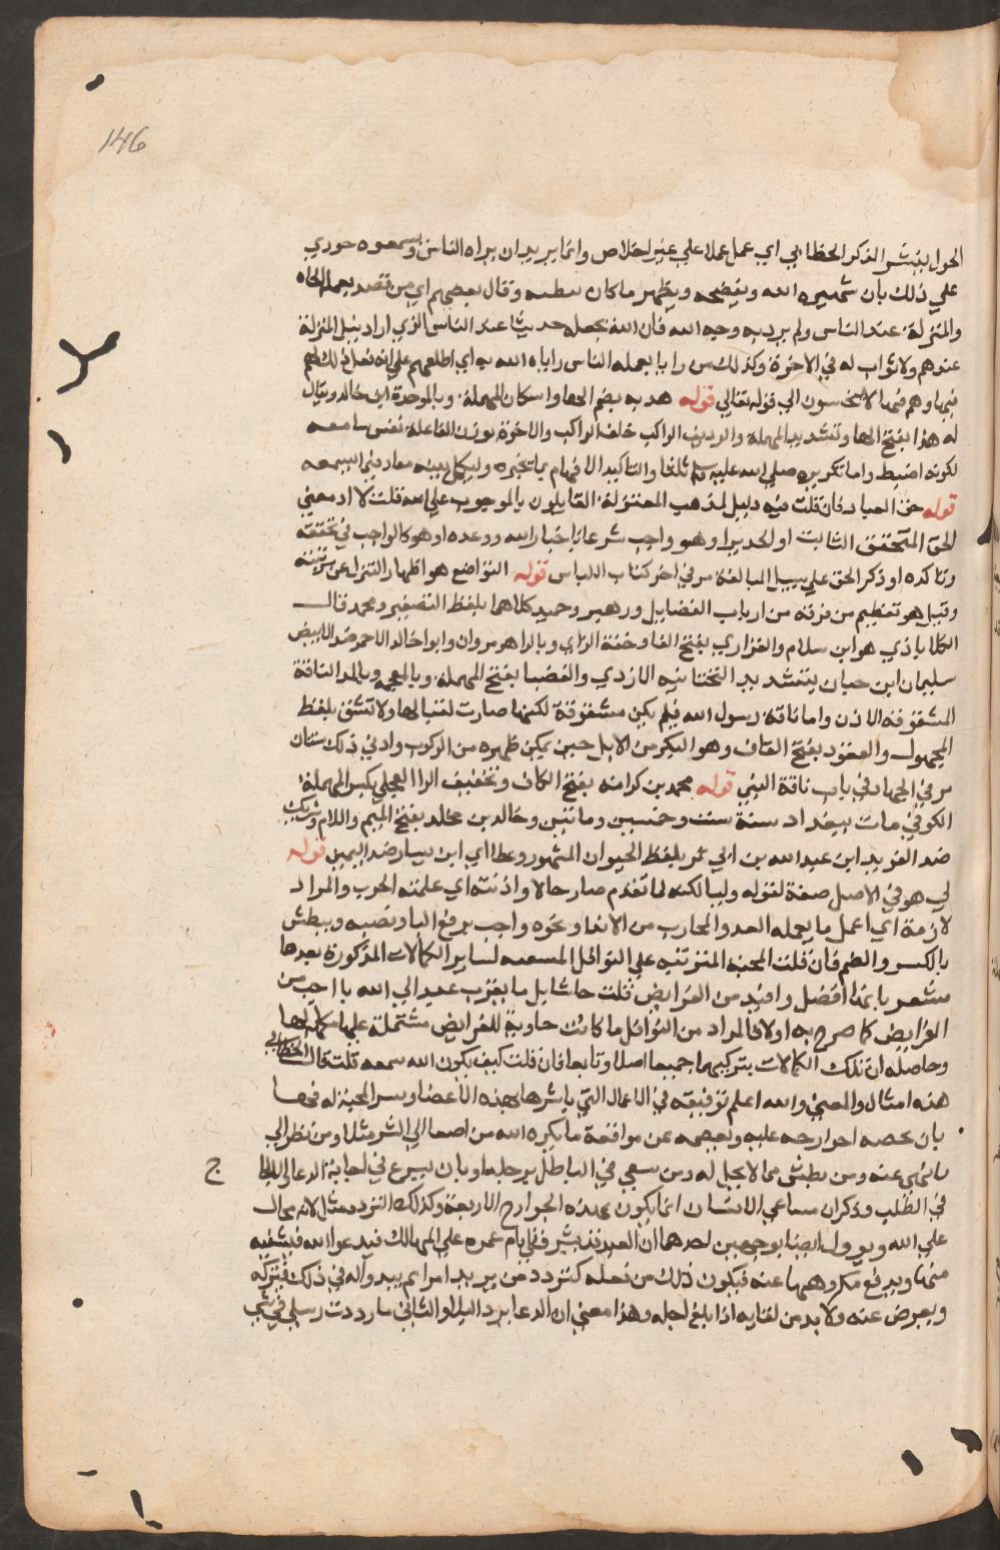 146
الحول ينشر الذكر الخطابي اي عمل عملا علي غير اخلاص وانما يريد ان يراه الناس ويسمعوه جوزي
علي ذلك بان شهره الله ويفضحه ويظهر ما كان يبطنه وقال بعضهم اي من قصد بعمله الجاه
والمنزلة عند الناس ولم يرد به وجه الله فان الله يجعله حديثا عند الناس الذي اراد نيل المنزلة
عندهم ولا ثواب له في الاخرة وكذلك من رايا بعمله الناس راياه الله به اي اطلعهم علي انه فعل ذلك لهم
فيها وهم فيها لا يبخسون الي قوله تعالي قوله هدبه بضم الها واسكان المهملة وبالموحدة ابن خالد ويقال
له هذا بفتح الها وتشديد المهملة والرديف الراكب خلف الراكب والاخرة بوزن الفاعلة نفس سامعه
لكونه اضبط واما تكريره صلي الله عليه وسلم ثلثا والتاكيد الافهام بما يخبره وليكمل بينه معاد فيما يسمعه
قوله حق العباد فان قلت فيه دليل لمذهب المعتزلة القايلين بالوجوب علي الله قلت لا اذ معني
الحق المتحقق الثابت او الجدير او هو واجب شرعا باخبار الله ووعده او هو كالواجب في تحققه
وتاكده او ذكر الحق علي سبيل المبالغة مر في اخر كتاب اللباس قوله التواضع هو اظهار التنزل عن مرتبته
وقيل هو تعظيم من فوقه من ارباب الفضايل وزهير وحميد كلاهما بلفظ التصغير ومحمد قال
الكلاباذي هو ابن سلام والفزاري بفتح الفا وخفة الزاي وبالرا هو مروان وابو خالد الاحمر ضد الابيض
سليمان ابن حيان بتشديد التحتانيه الازدي والعضبا بفتح المهملة وبالمعجمة وبالمد الناقة
المشقوقة الاذن واما ناقة رسول الله فلم يكن مشقوقة لكنها صارت لقبا لها ولا تسبق بلفظ
المجهول والقعود بفتح القاف وهو البكر من الابل حين يمكن ظهره من الركوب وادني ذلك سنتان
مر في الجهاد في باب ناقة النبي قوله محمد بن كرامه بفتح الكاف وتخفيف الرا العجلي بكسر المهملة
الكوفي مات ببغداد سنة ست وخمسين وماتين وخالد بن مخلد بفتح الميم واللام وشريك
ضد الفريد ابن عبد الله بن ابي نمر بلفظ الحيوان المشهور وعطا اي ابن يسار ضد اليمين قوله
لي هو في الاصل صفة لقوله وليا لكنه لما تقدم صار حالا واذنته اي علمته الحرب والمراد
لازمة اي اعمل ما يعمله العدو المحارب من الايذا ونحوه واجب يرفع البا ونصبه ويبطش
بالكسر والضم فان قلت المحبة المترتبة علي النوافل لساير الكمالات المذكورة بعدها
مشعر بانها افضل وافيد من الفرايض قلت حاشا بل ما يتقرب عبد الي الله با احب من
الفرايض كما صرح به اولا فالمراد من النوافل ما كانت حاوية للفرايض مشتملة عليها مكملة لها
وحاصله ان تلك الكمالات بتركيبها جميعا اصلا وتابعا فان قلت كيف يكون الله سمعه قلت قال الخطابي
هذه امثال والمعني والله اعلم توفيقه في الاعمال التي باشرها بهذه الاعضا ويسر المحبة له فيها
بان يحفظ جوارحه عليه ويعصمه عن مواقعة ما يكره الله من اصغا الي الشر مثلا ومن نظر الي
ما نهي عنه ومن بطش مما لا يحل له ومن سعي في الباطل برجله او بان يسرع في اجابة الدعا والالحاح
ج
في الطلب وذكر ان مساعي الانسان انما يكون بهذه الجوارح الاربعة وكذلك التردد مثل لانه محال
علي الله وياول ايضا بوجهين احدهما ان العبد قد يشرف في ايام عمره علي المهالك فيدعوا الله فيشفيه
منها ويدفع مكروهها عنه فيكون ذلك من فعله كتردد من يريد امرا ثم يبدو له في ذلك فيتركه
ويعرض عنه ولا بد من لقايه اذا بلغ اجله وهذا معني ان الدعا يرد البلا والثاني ما رددت رسلي في شي